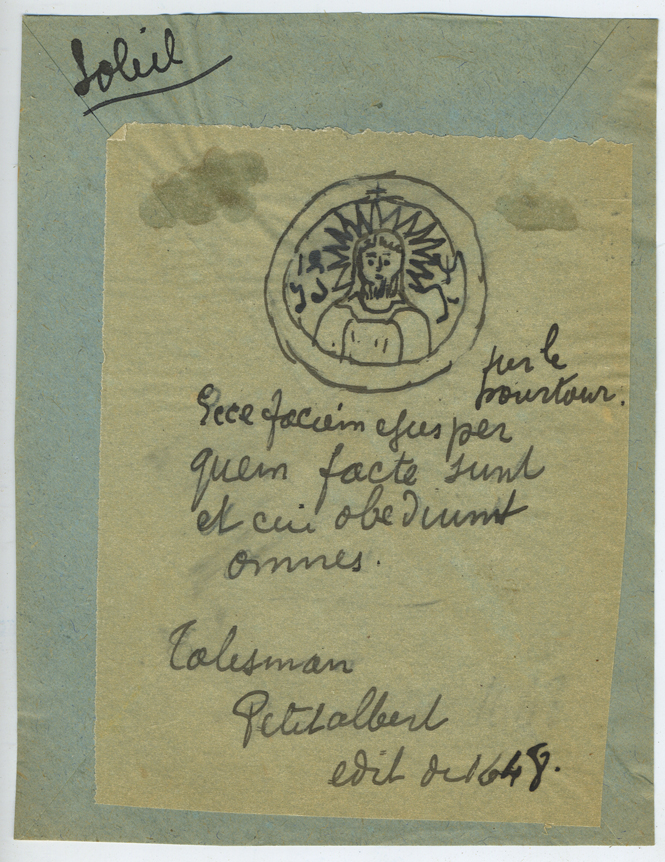 Soleil
sur le
pourtour.
Ecce faciem ejus per
quem facte sunt
et cui obediunt
omnes.
Talesman
Petit albert
edit de 1648.